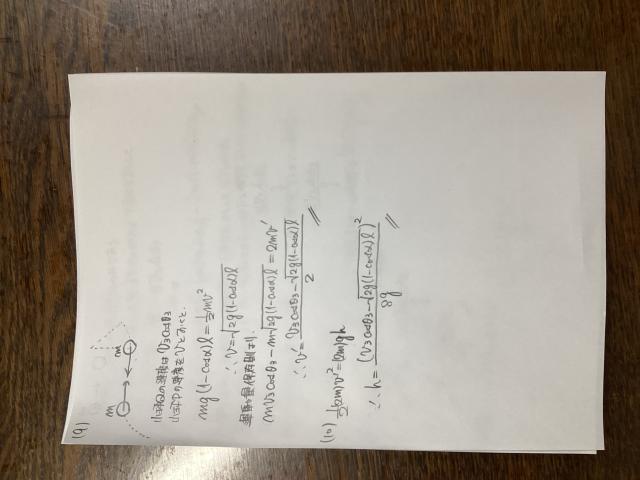 (9)
m
m
小球Qの速度は v₃cosθ₃
小球Pの速度を v とおくと、
mg(1-cosα)l = 1/2 mv²
∴ v = √2g(1-cosα)l
運動量保存則より、
mv₃cosθ₃ - m√2g(1-cosα)l = 2mv'
∴ v' = (v₃cosθ₃ - √2g(1-cosα)l) / 2
(10) 1/2(2m)v'² = (2m)gh
∴ h = (v₃cosθ₃ - √2g(1-cosα)l)² / 8g